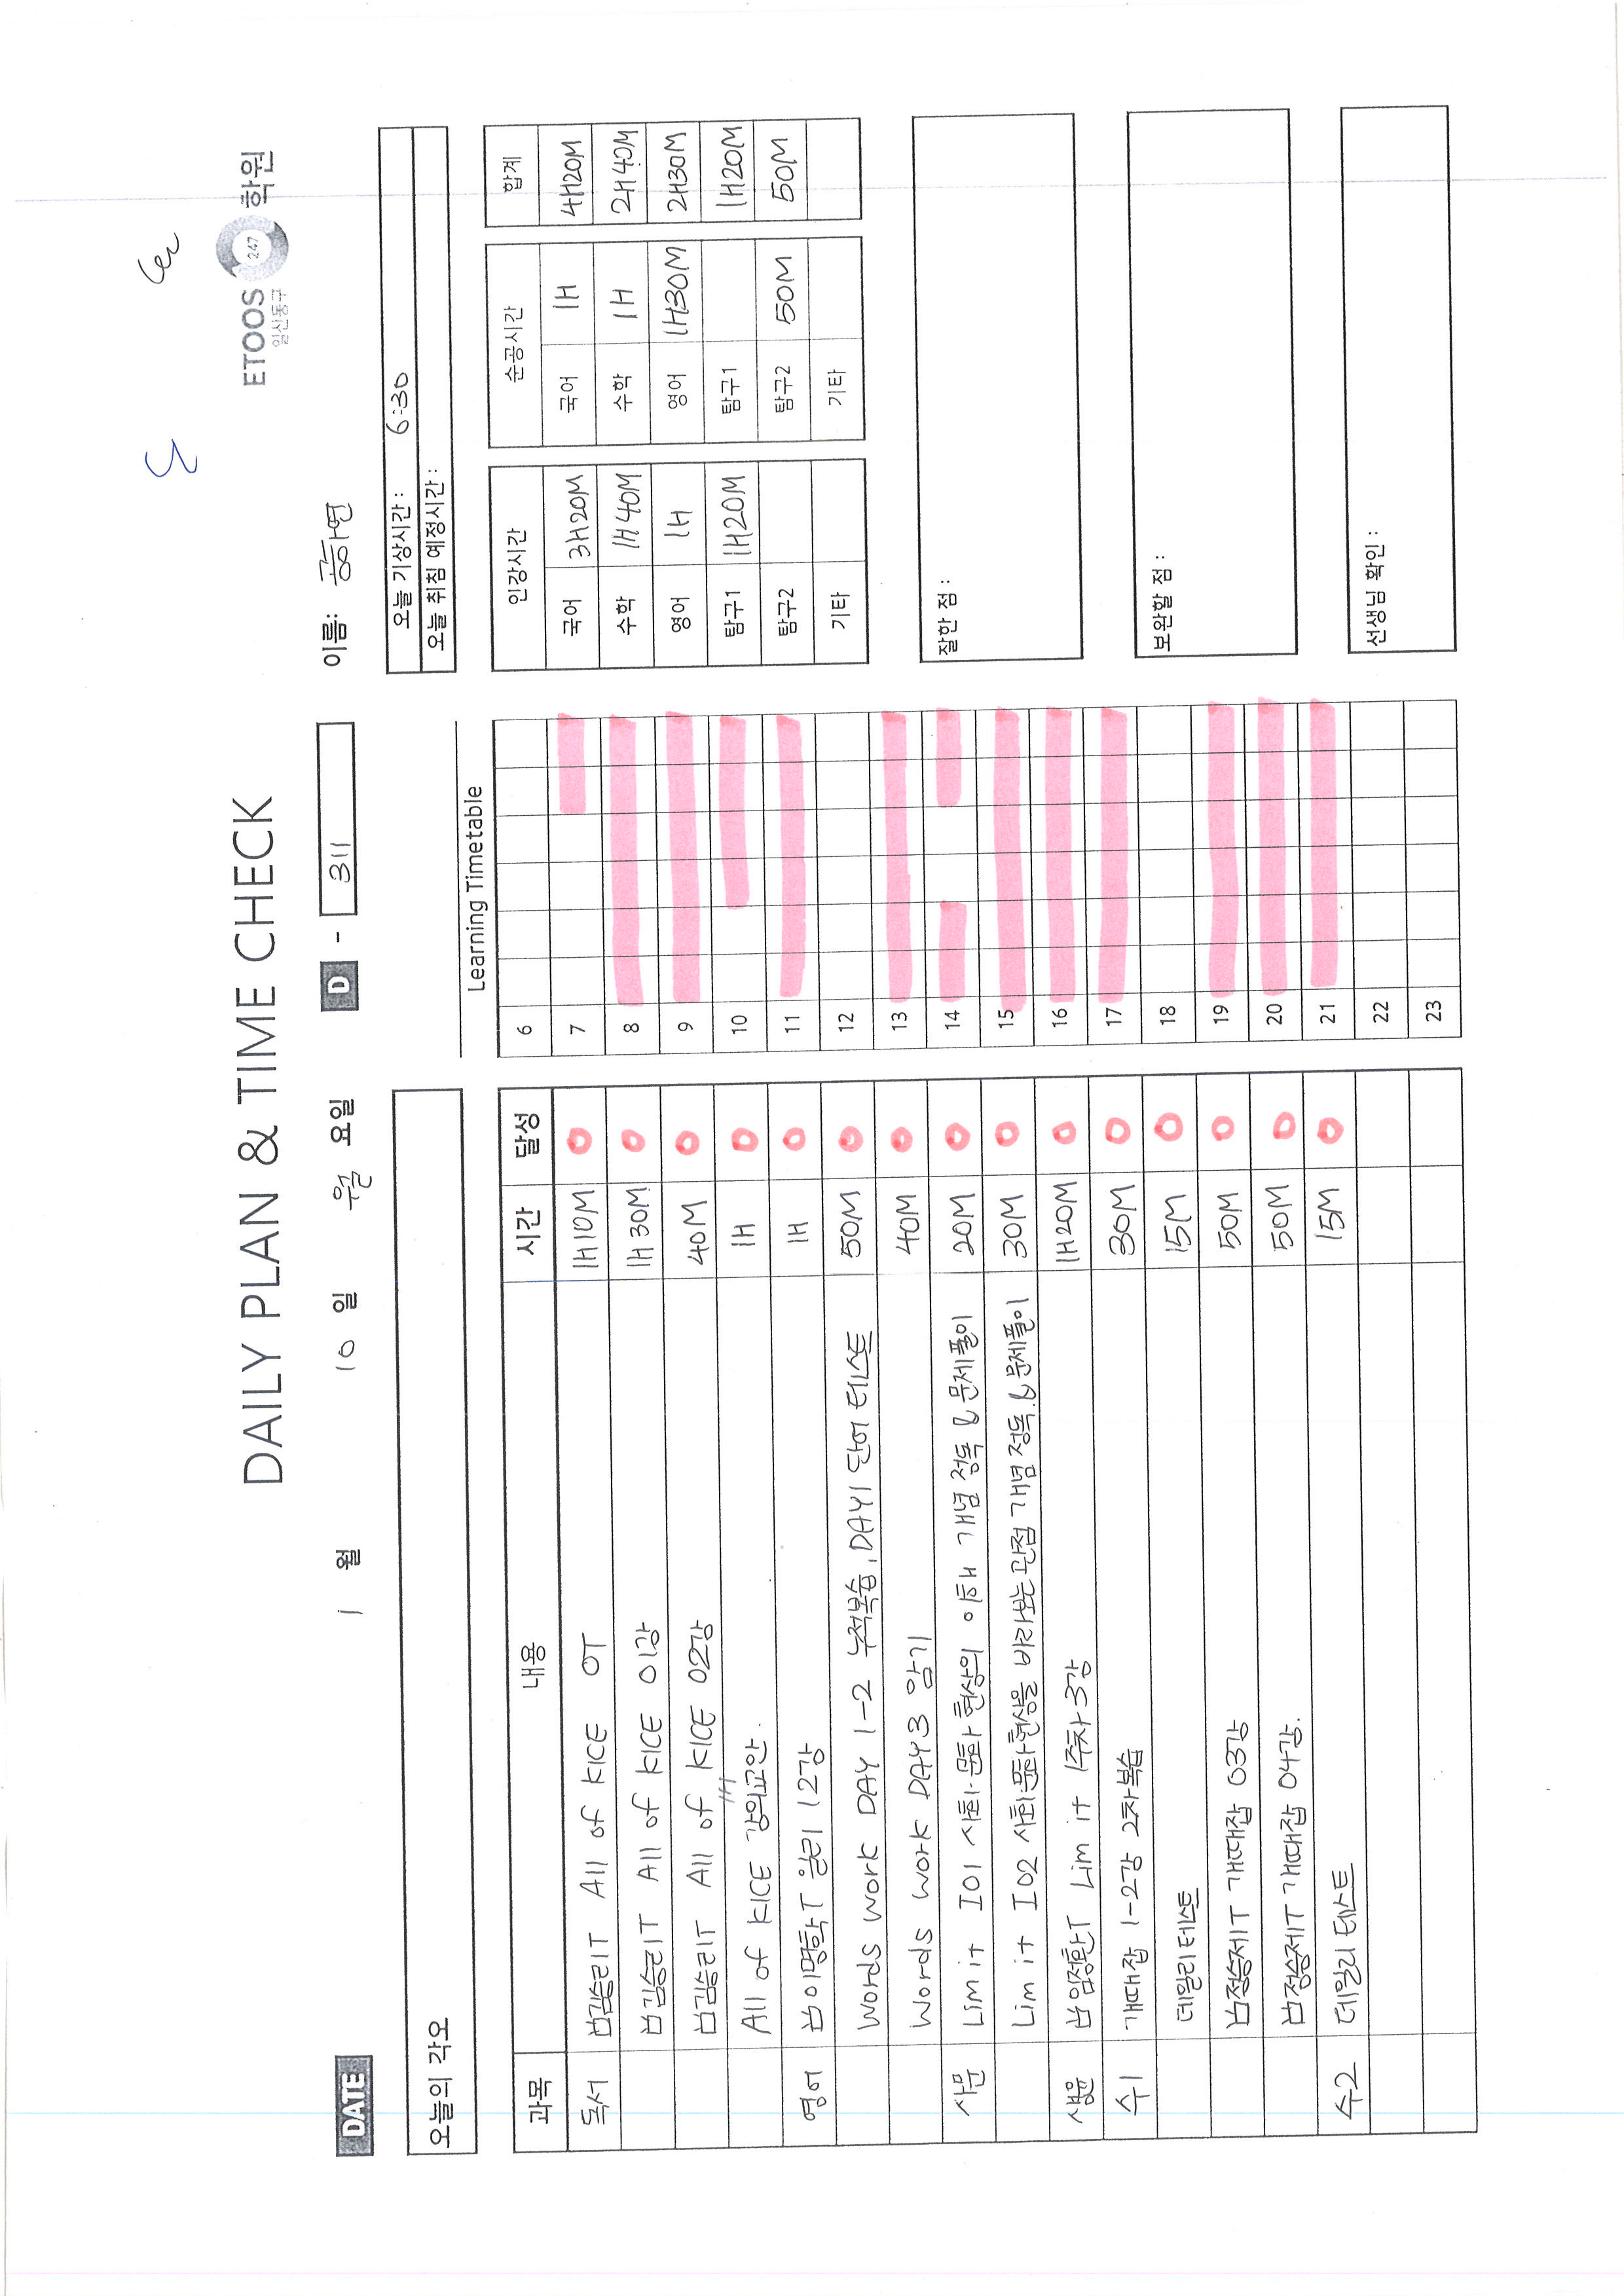 DAILY PLAN & TIME CHECK
ETOOS 247 학원
일산동구
DATE 1 월 10 일 월 요일 D - 311 이름:
오늘의 각오
오늘 기상시간 : 6:30
오늘 취침 예정시간 :
과목 내용 시간 달성
독서 김승리T All of KICE OT 1H10M
김승리T All of KICE 01강 1H30M
김승리T All of KICE 02강 40M
All of KICE 강의교안. 1H
영어 이명학T 일리 12강 1H
Words work DAY 1-2 누적복습, DAY1 단어 테스트 50M
Words work DAY3 암기 40M
사문 Lim it I01 사회·문화 현상의 이해 개념 정독 & 문제풀이 20M
Lim it I02 사회·문화 현상을 바라보는 관점 개념 정독 & 문제풀이 30M
생윤 임정환T Lim it 1주차 3강 1H20M
수1 개때잡 1-2강 2차복습 30M
데일리 테스트 15M
정승제T 개때잡 03강 50M
정승제T 개때잡 04강. 50M
수2 데일리 테스트 15M
Learning Timetable
6
7
8
9
10
11
12
13
14
15
16
17
18
19
20
21
22
23
인강시간 순공시간 합계
국어 3H20M 국어 1H 4H20M
수학 1H40M 수학 1H 2H40M
영어 1H 영어 1H30M 2H30M
탐구1 1H20M 탐구1 1H20M
탐구2 탐구2 50M 50M
기타 기타
잘한 점 :
보완할 점 :
선생님 확인 :